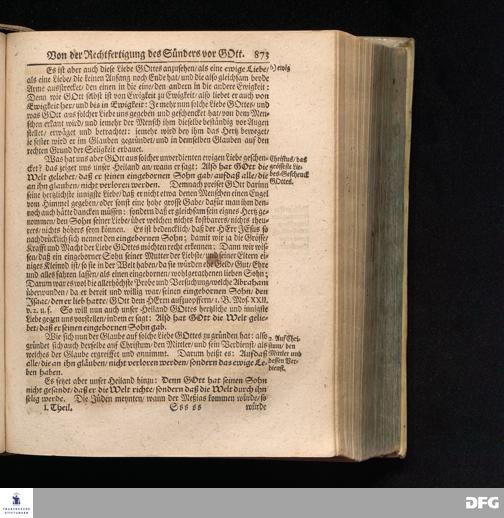 Von der Rechtfertigung des Sünders vor GOtt. 873
Es ist aber auch diese Liebe GOttes anzusehen / als eine ewige Liebe / b) ewig
als eine Liebe / die keinen Anfang noch Ende hat / und die also gleichsam beyde
Arme ausstrecket / den einen in die eine / den andern in die andere Ewigkeit:
Denn wie GOtt selbst ist von Ewigkeit zu Ewigkeit / also liebet er auch von
Ewigkeit her / und bis in Ewigkeit: Je mehr nun solche Liebe GOttes / und
was GOtt aus solcher Liebe uns gegeben und geschencket hat / von dem Men-
schen erkant wird / und iemehr der Mensch ihm dieselbe beständig vor Augen
stellet / erwäget und betrachtet: iemehr wird bey ihm das Hertz beweget /
ie fester wird er im Glauben gegründet / und in demselben Glauben auf den
rechten Grund der Seligkeit erbauet.
Was hat uns aber GOtt aus solcher unverdienten ewigen Liebe geschen-
cket? das zeiget uns unser Heiland an / wann er saget: Also hat GOtt die
Welt geliebet / daß er seinen eingebornen Sohn gab / auf daß alle / die
an ihn glauben / nicht verloren werden. Demnach preiset GOtt darinn
seine hertzlichste innigste Liebe / daß er nicht etwa denen Menschen einen Engel
vom Himmel gegeben / oder sonst eine hohe grosse Gabe / dafür man ihm den-
noch auch hätte dancken müssen: sondern daß er gleichsam sein eignes Hertz ge-
nommen / den Sohn seiner Liebe / über welchen nichts kostbarers / nichts theu-
rers / nichts höhers seyn können. Es ist bedencklich / daß der HErr JEsus so
nachdrücklich sich nennet den eingebornen Sohn; damit wir ja die Grösse /
Krafft und Macht der Liebe GOttes möchten recht erkennen: Dann wir wis-
sen / daß ein eingeborner Sohn seiner Mutter der Liebste / und seiner Eltern ei-
niges Kleinod ist / so sie in der Welt haben / da sie würden ehe Geld / Gut / Ehre
und alles fahren lassen / als einen eingebornen / wohlgerathenen lieben Sohn;
Darum war es wol die allerhöchste Probe und Versuchung / welche Abraham
überwunden / da er bereit und willig war / seinen eingebornen Sohn / den
Isaac / den er lieb hatte / GOtt dem HErrn aufzuopffern / 1. B. Mos. XXII.
v. 2. u. f. So will nun auch unser Heiland GOttes hertzliche und innigste
Liebe gegen uns vorstellen / indem er saget: Also hat GOtt die Welt gelie-
bet / daß er seinen eingebornen Sohn gab.
Christus / das
grösseste Lie-
bes-Geschenck
GOttes.
Wie sich nun der Glaube auf solche Liebe GOttes zu gründen hat: also
gründet sich auch derselbe auf Christum / den Mittler / und sein Verdienst / als
welches der Glaube ergreiffet und annimmt. Darum heißt es: Auf daß
alle / die an ihn gläuben / nicht verloren werden / sondern das ewige Le-
ben haben.
2. Auf Chri-
stum / den
Mittler und
dessen Ver-
dienst.
Es setzet aber unser Heiland hinzu: Denn GOtt hat seinen Sohn
nicht gesandt / daß er die Welt richte / sondern daß die Welt durch ihn
selig werde. Die Jüden meynten / wann der Meßias kommen würde / so
I. Theil. Sss ss würde
FRANCKESCHE STIFTUNGEN
DFG